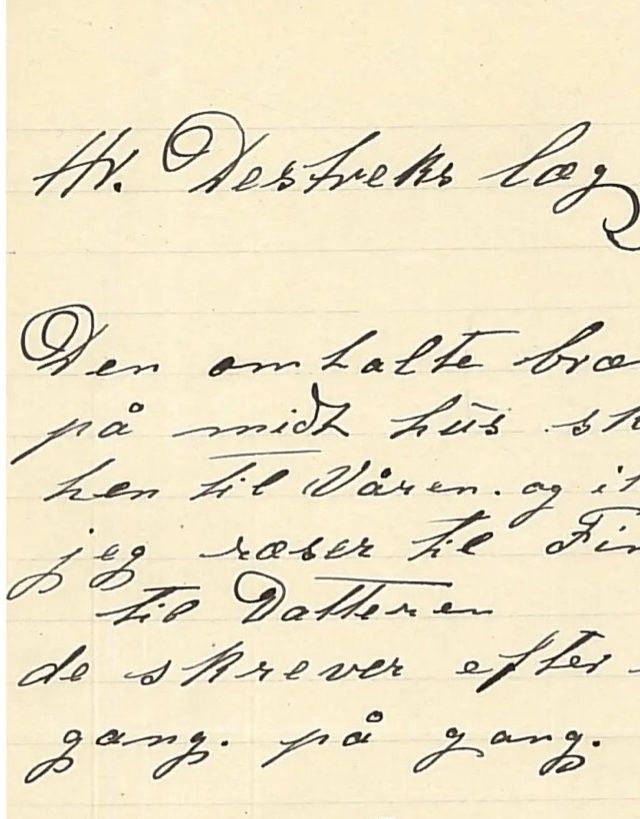 Hr. Destreks læg
Den omtalte bræ
på midt hus sk
hen til Våren. og it
jeg ræser til Fin
til Datteren
de skrever efter
gang. på gang.